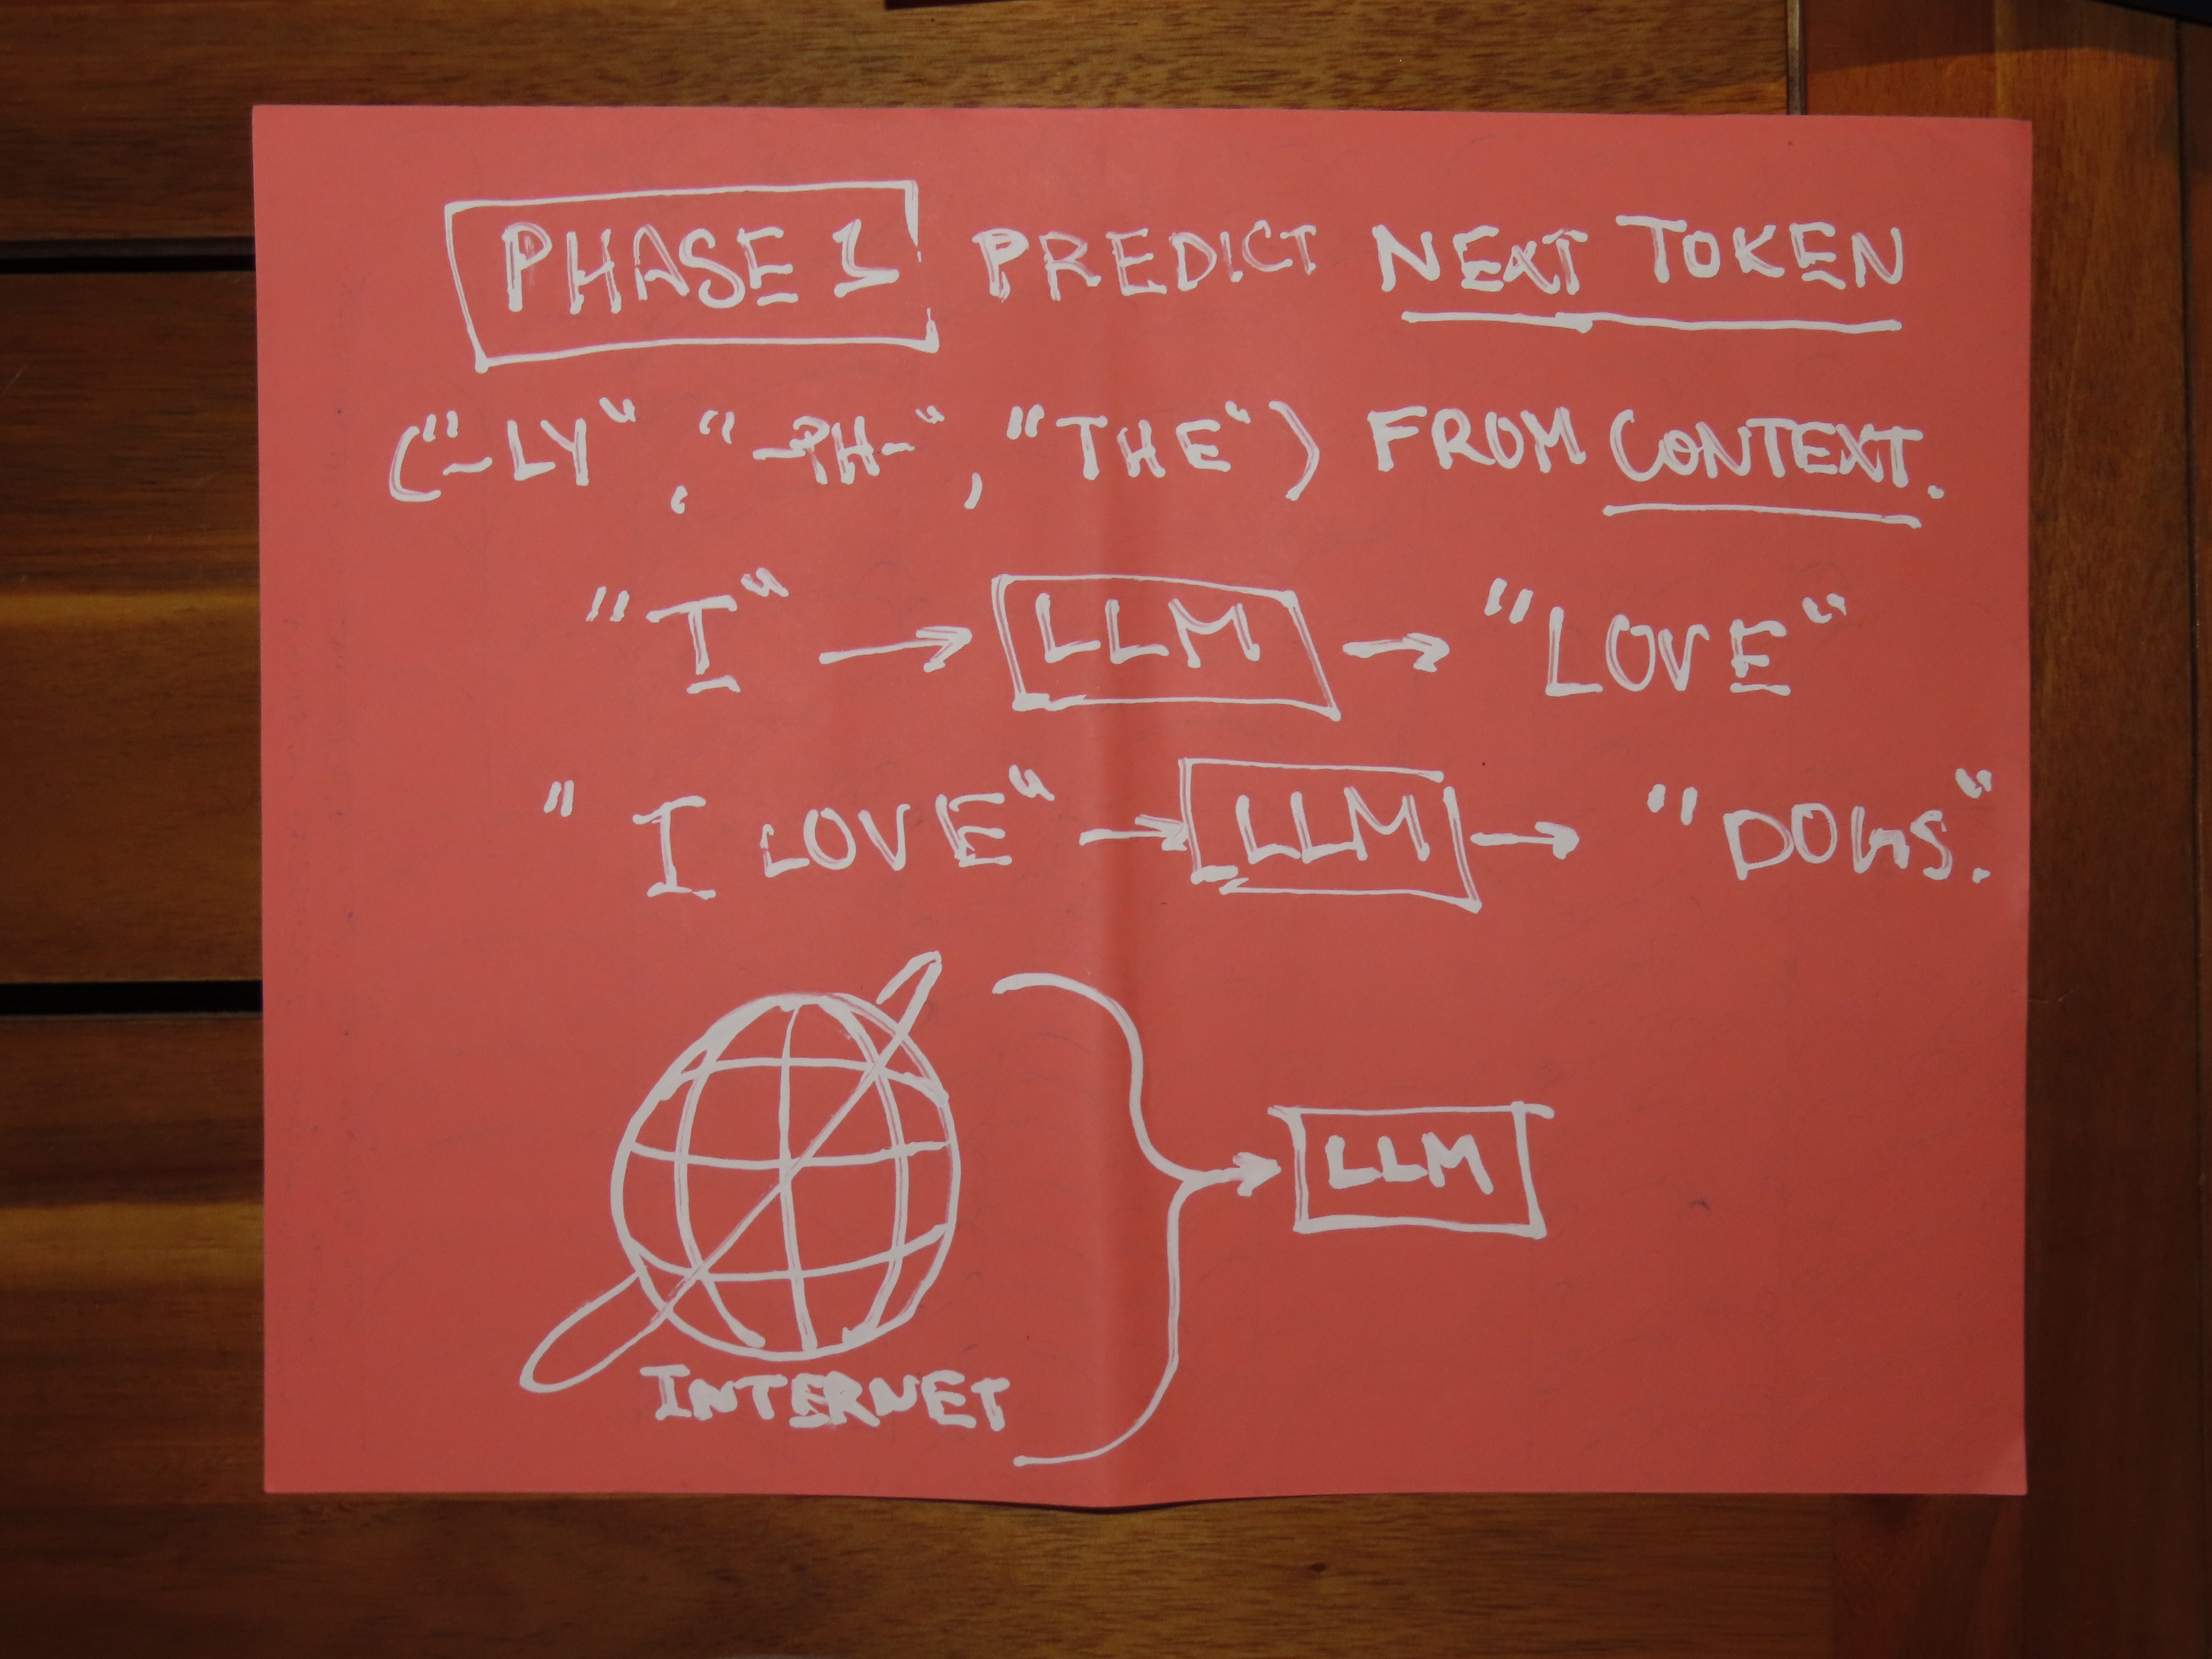 PHASE 1 PREDICT NEXT TOKEN
("-LY", "-PH-", "THE") FROM CONTEXT.
"I" → LLM → "LOVE"
"I LOVE" → LLM → "DOGS."
LLM
INTERNET